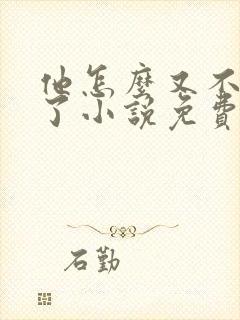 他怎麼又不
了小說免費
石勤